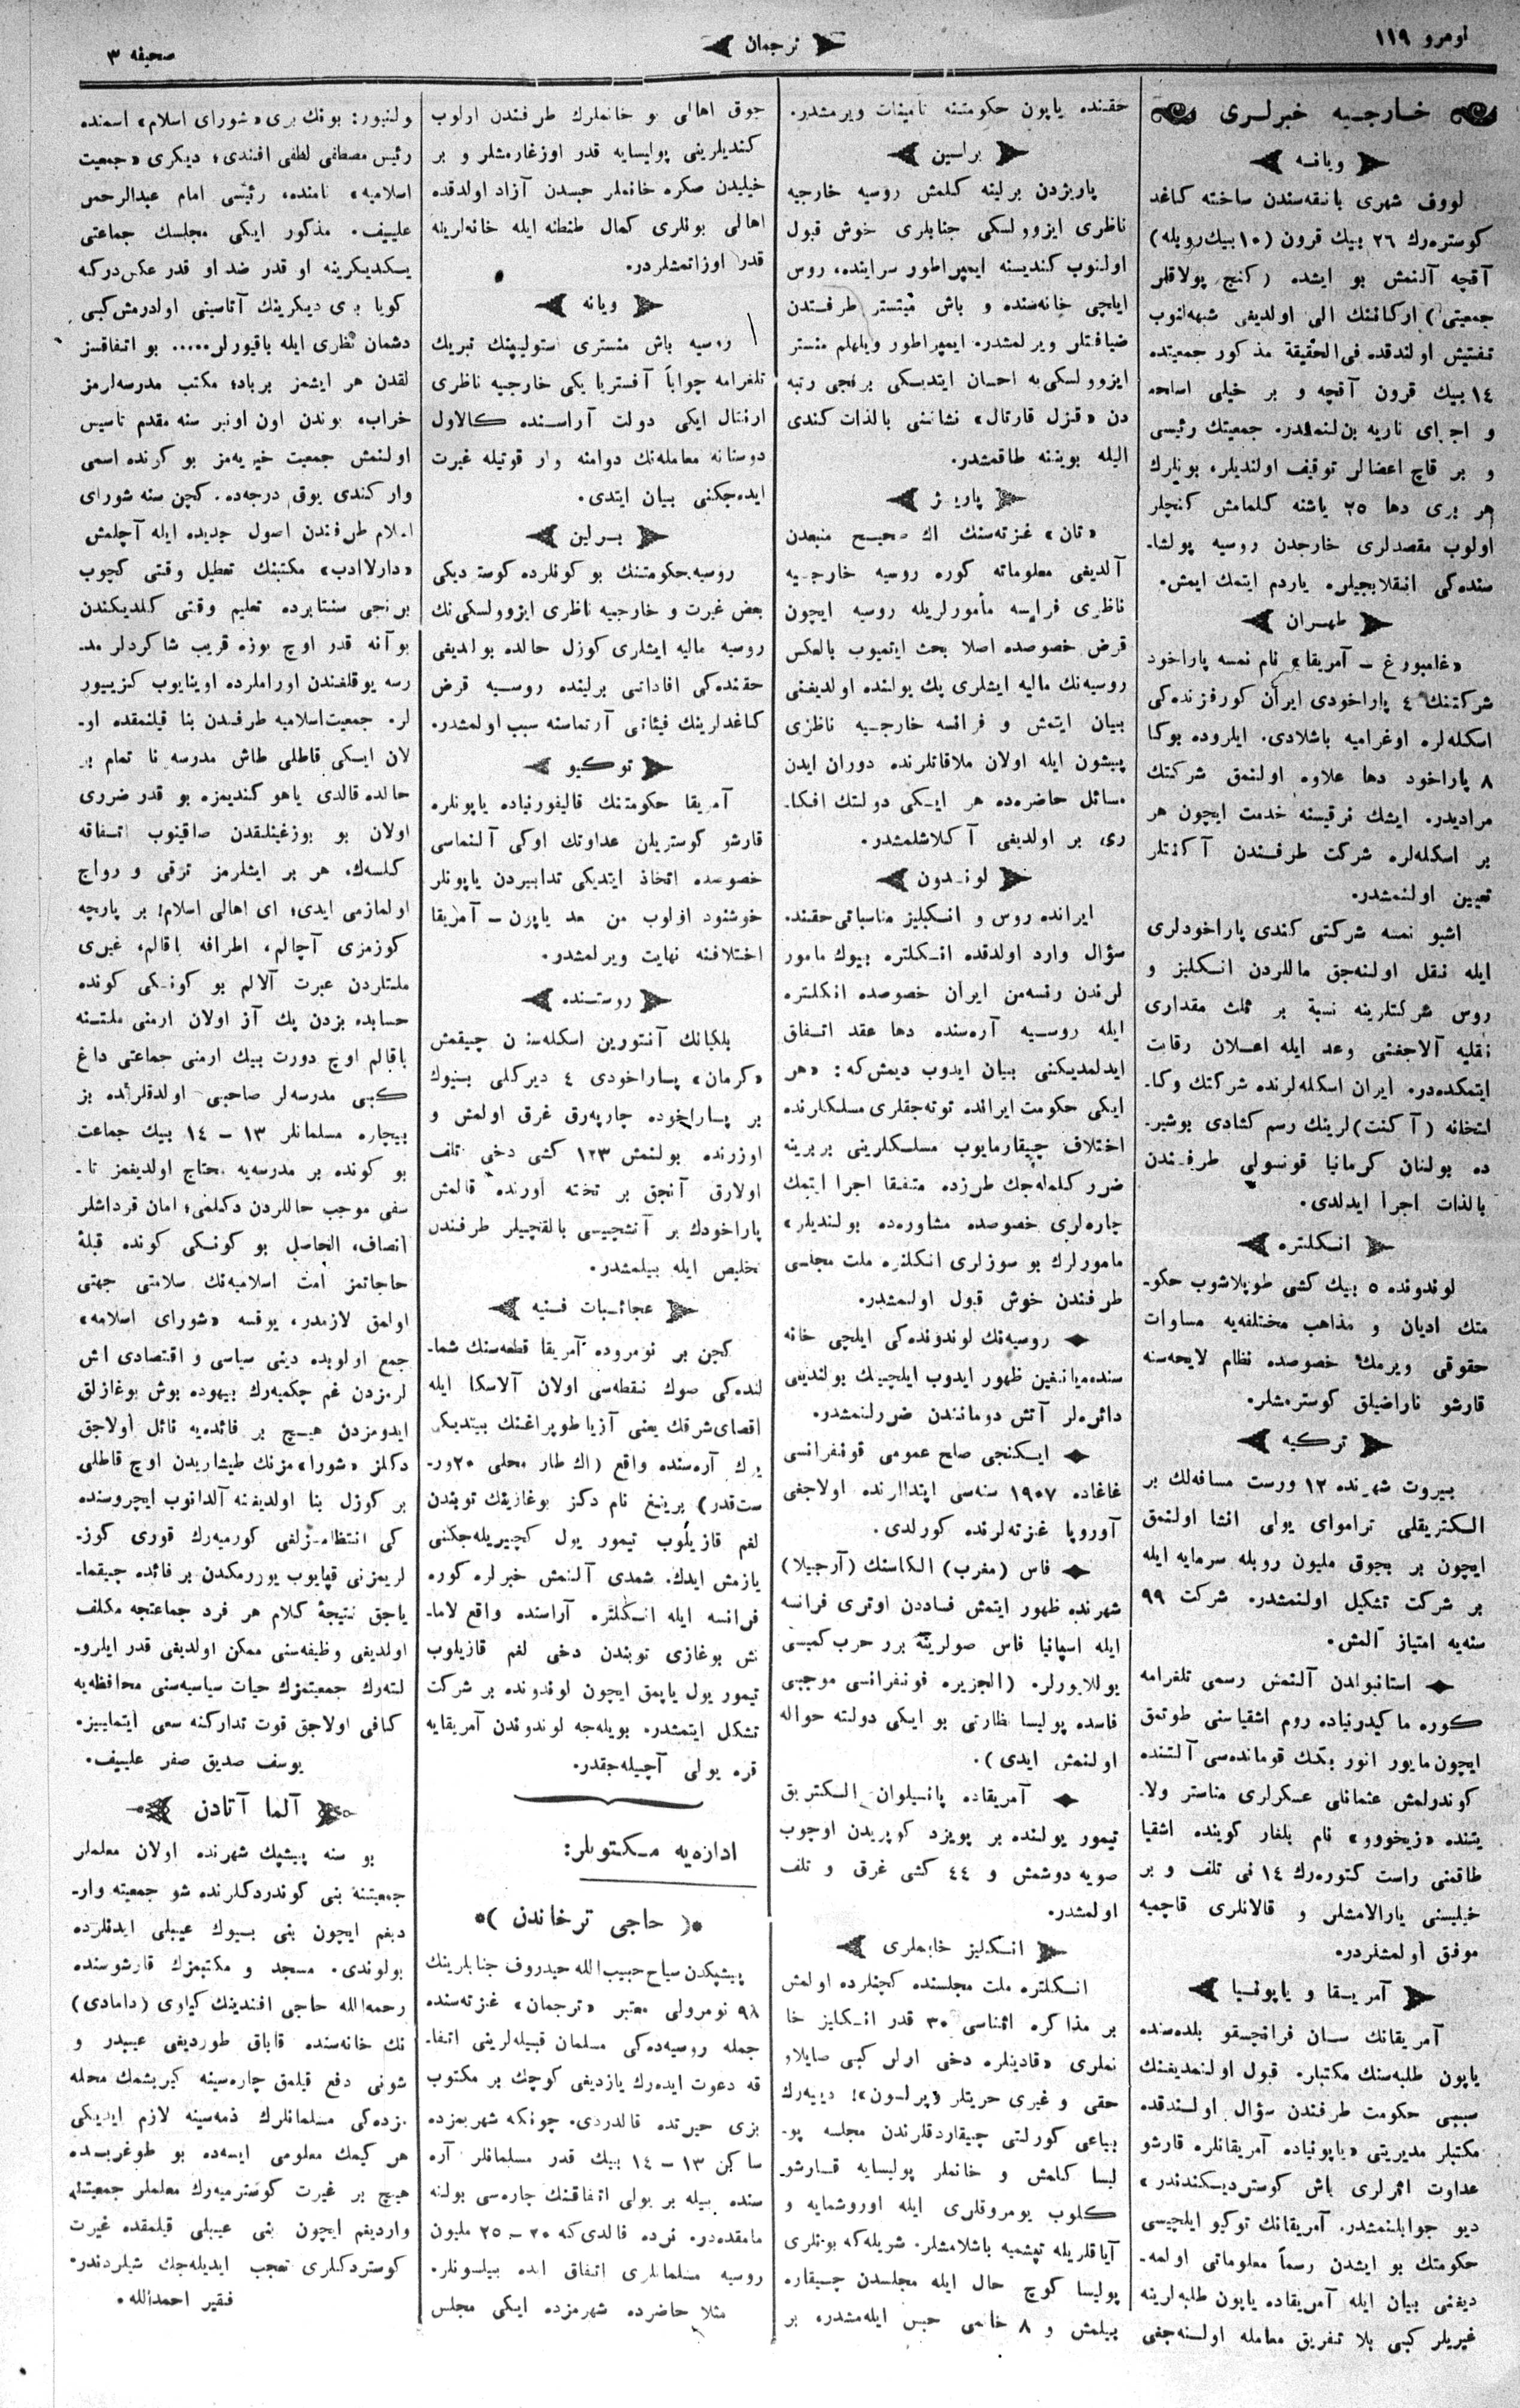 نومرو ١١٩
ترجمان
صحيفه ٣
خارجيه خبرلری
ويانه
لووف شهری بانقه‌سندن ساخته كاغد
كوستره‌رك ٢٦ بيك قرون (١٠ بيك روبله)
آقچه آلنمش بو ايشده (كنج پولاقلر
جمعيتی) اركاننك الی اولديغی شبهه‌لنوب
تفتيش اولندقده فی الحقيقة مذكور جمعيتده
١٤ بيك قرون آقچه و بر خيلی اسلحه
و اجزای ناريه بولنمشدر. جمعيتك رئيسی
و بر قاچ اعضالر توقيف اولنديلر، بونلرك
هر بری دها ٢٥ ياشنه كلمامش كنجلر
اولوب مقصدلری خارجدن روسيه پولشا-
سنده‌كی انقلابجيلره ياردم ايتمك ايمش.
طهران
«غامبورغ – آمريقا» نام نمسه پاراخود
شركتنك ٤ پاراخودی ايران كورفزنده‌كی
اسكله‌لره اوغراميه باشلادی. ايلروده بوكا
٨ پاراخود دها علاوه اولنمق شركتك
مراديدر. ايشك ترقيسنه خدمت ايچون هر
بر اسكله‌لره شركت طرفندن آكنتلر
تعيين اولنمشدر.
اشبو نمسه شركتی كندی پاراخودلری
ايله نقل اولنه‌جق ماللردن انكليز و
روس شركتلرينه نسبة بر ثلث مقداری
نقليه آلاجغنی وعد ايله اعلان رقابت
ايتمكده‌در. ايران اسكله‌لرنده شركتك وكا-
لتخانه (آكنت) لرينك رسم كشادی بوشير-
ده بولنان كرمانيا قونسولی طرفندن
بالذات اجرا ايدلدی.
انكلتره
لوندونده ٥ بيك كشی طوپلاشوب حكو-
متك اديان و مذاهب مختلفه‌يه مساوات
حقوقی ويرمك خصوصده نظام لايحه‌سنه
قارشو ناراضيلق كوسترمشلر.
تركيه
بيروت شهرنده ١٢ ورست مسافه‌لك بر
الكتريقلی تراموای يولی انشا اولنمق
ايچون بر بچوق مليون روبله سرمايه ايله
بر شركت تشكيل اولنمشدر. شركت ٩٩
سنه‌يه امتياز آلمش.
استانبولدن آلنمش رسمی تلغرامه
كوره ماكيدونياده روم اشقياسنی طوتمق
ايچون مايور انور بكك قوماندەسی آلتنده
كوندرلمش عثمانلی عسكرلری مناستر ولا-
يتنده «زيخووو» نام بلغار كوينده اشقيا
طاقمنی راست كتوره‌رك ١٤ نی تلف و بر
خيليسنی يارالامشلر و قالانلری قاچميه
موفق اولمشلردر.
آمريقا و ياپونيا
آمريقانك سان فرانچسقو بلده‌سنده
ياپون طلبه‌سنك مكتبلره قبول اولنمديغنك
سببی حكومت طرفندن سؤال اولندقده
مكتبلر مديريتی «ياپونياده آمريقانلره قارشو
عداوت اثرلری باش كوسترديكندندر»
ديو جوابلنمشدر. آمريقانك توكيو ايلچيسی
حكومتك بو ايشدن رسماً معلوماتی اولمه-
ديغنی بيان ايله آمريقاده ياپون طلبه‌لرينه
غيريلر كبی بلا تفريق معامله اولنه‌جغی
حقنده ياپون حكومتنه تامينات ويرمشدر.
پاريژدن برلينه كلمش روسيه خارجيه
ناظری ايزوولسكی جنابلری خوش قبول
اولنوب كنديسنه ايمپراطور سراينده، روس
ايلچی خانه‌سنده و باش منستر طرفندن
ضيافتلر ويرلمشدر. ايمپراطور ويلهلم منستر
ايزوولسكی‌يه احسان ايتديكی برنجی رتبه
دن «قزل قارتال» نشاننی بالذات كندی
اليله بويننه طاقمشدر.
پاريژ
«تان» غزته‌سنك اك صحيح منبعدن
آلديغی معلوماته كوره روسيه خارجيه
ناظری فرانسه مأمورلريله روسيه ايچون
قرض خصوصده اصلا بحث ايتميوب بالعكس
روسيه‌نك ماليه ايشلری پك يولنده اولديغنی
بيان ايتمش و فرانسه خارجيه ناظری
پيشون ايله اولان ملاقاتلرنده دوران ايدن
مسائل حاضره‌ده هر ايكی دولتك افكا-
ری بر اولديغی آكلاشلمشدر.
لوندون
ايرانده روس و انكليز مناسباتی حقنده
سؤال وارد اولدقده انكلتره بيوك مامور
لرندن رنسه‌من ايران خصوصده انكلتره
ايله روسيه آره‌سنده دها عقد اتفاق
ايدلمديكنی بيان ايدوب ديمش‌كه: «هر
ايكی حكومت ايرانده توته‌جقلری مسلكلرنده
اختلاف چيقارمايوب مسلكلرينی بربرينه
ضرر كلمه‌جك طرزده متفقا اجرا ايتمك
چاره‌لری خصوصده مشاوره‌ده بولنديلر»
مامورلرك بو سوزلری انكلتره ملت مجلسی
طرفندن خوش قبول اولنمشدر.
روسيه‌نك لوندونده‌كی ايلچی خانه
سنده يانغين ظهور ايدوب ايلچينك بولنديغی
دائره‌لر آتش دوماندن ضررلنمشدر.
ايكنجی صلح عمومی قونفرانسی
غاغاده ١٩٠٧ سنه‌سی ابتدالرنده اولاجغی
آوروپا غزته‌لرنده كورلدی.
فاس (مغرب) الكاسنك (آرجيلا)
شهرنده ظهور ايتمش فساددن اوتری فرانسه
ايله اسپانيا فاس صولرينه برر حرب كميسی
يوللايورلر. (الجزيره قونفرانسی موجبی
فاسده پوليسا نظارتی بو ايكی دولته حواله
اولنمش ايدی).
آمريقاده پانسيلوان الكتريق
تيمور يولنده بر پويزد كوپريدن اوچوب
صويه دوشمش و ٤٤ كشی غرق و تلف
اولمشدر.
انكليز خانملری
انكلتره ملت مجلسنده كچنلرده اولمش
بر مذاكره اثناسی ٣٠ قدر انكليز خا
نملری «قادينلره دخی ارلر كبی صايلاو
حقی و غيری حريتلر ويرلسون»! دييه‌رك
بياعی كورلتی چيقاردقلرندن مجلسه پو-
ليسا كلمش و خانملر پوليسايه قارشو
كلوب يومروقلری ايله اوروشمايه و
آياقلريله تپشميه باشلامشلر. شريله‌كه بونلری
پوليسا كوچ حال ايله مجلسدن چيقاره
بيلمش و ٨ خانمی حبس ايله‌مشدر، بر
چوق اهالی بو خانملرك طرفندن اولوب
كنديلرينی پوليسايه قدر اوزغارمشلر و بر
خيليدن صكره خانملر حبسدن آزاد اولدقده
اهالی بونلری كمال طنطنه ايله خانه‌لرينه
قدر اوزاتمشلردر.
ويانه
روسيه باش منستری استوليپنك تبريك
تلغرامه جواباً آفستريا يكی خارجيه ناظری
ارنتال ايكی دولت آراسنده كالاول
دوستانه معامله‌نك دوامنه وار قوتيله غيرت
ايده‌جكنی بيان ايتدی.
برلين
روسيه حكومتنك بو كونلرده كوسترديكی
بعض غيرت و خارجيه ناظری ايزوولسكی‌نك
روسيه ماليه ايشلری كوزل حالده بولنديغی
حقنده‌كی افاداتی برلينده روسيه قرض
كاغدلرينك فيئاتی آرتماسنه سبب اولمشدر.
توكيو
آمريقا حكومتنك قاليفورنياده ياپونلره
قارشو كوستريلن عداوتك اوكی آلنماسی
خصوصده اتخاذ ايتديكی تدابيردن ياپونلر
خوشنود اولوب من بعد ياپون – آمريقا
اختلافنه نهايت ويرلمشدر.
روستنده
بلكيانك آنتورپن اسكله‌سندن چيقمش
«كرمان» پاراخودی ٤ ديركلی بيوك
بر پاراخوده چارپه‌رق غرق اولمش و
اوزرنده بولنمش ١٢٣ كشی دخی تلف
اولارق آنجق بر تخته اورنده قالمش
پاراخودك بر آتشجيسی بالقجيلر طرفندن
تخليص ايله بيلمشدر.
عجائبات فنيه
كچن بر نومروده آمريقا قطعه‌سنك شما-
لنده‌كی صوك نقطه‌سی اولان آلاسكا ايله
اقصای شرقك يعنی آزيا طوپراغنك بيتديكی
يرك آره‌سنده واقع (اك طار محلی ٢٠ ور-
ست‌قدر) برينغ نام دكز بوغازينك توبندن
لغم قازيلوب تيمور يول كچيريله‌جكنی
يازمش ايدك. شمدی آلنمش خبرلره كوره
فرانسه ايله انكلتره آراسنده واقع لاما-
نش بوغازی توبندن دخی لغم قازيلوب
تيمور يول ياپمق ايچون لوندونده بر شركت
تشكل ايتمشدر. بويله‌جه لوندوندن آمريقايه
قره يولی آچيله‌جقدر.
اداره‌يه مكتوبلر:
*( حاجی ترخاندن )*
پيشپكدن سياح حبيب‌الله حيدروف جنابلرينك
٩٨ نومرولی معتبر «ترجمان» غزته‌سنده
جمله روسيه‌ده‌كی مسلمان قبيله‌لرينی اتفا-
قه دعوت ايده‌رك يازديغی كوچك بر مكتوب
بزی حيرتده قالدردی. چونكه شهريمزده
ساكن ١٣ – ١٤ بيك قدر مسلمانلر آره
سنده بيله بر يولی اتفاقنك چاره‌سی بولنه
مامقده‌در. نرده قالدی‌كه ٢٠ – ٢٥ مليون
روسيه مسلمانلری اتفاق ايده بيلسونلر.
مثلا حاضرده شهرمزده ايكی مجلس
ولنيور: بونك بری «شورای اسلام» اسمنده
رئيس مصطفی لطفی افندی؛ ديكری «جمعيت
اسلاميه» نامنده، رئيسی امام عبدالرحمن
علييف. مذكور ايكی مجلسك جماعتی
يكديكرينه او قدر ضد او قدر عكس‌دركه
كويا بری ديكرينك آتاسينی اولدرمش‌كبی
دشمان نظری ايله باقيورلر..... بو اتفاقسز
لقدن هر ايشمز برباد؛ مكتب مدرسه‌لرمز
خراب، بوندن اون اونبر سنه مقدم تاسيس
اولنمش جمعيت خيريه‌مز بو كرنده اسمی
وار كندی يوق درجه‌ده. كچن سنه شورای
اسلام طرفندن اصول جديده ايله آچلمش
«دارلادب» مكتبنك تعطيل وقتی كچوب
برنجی سنتابرده تعليم وقتی كلديكندن
بو آنه قدر اوچ يوزه قريب شاكردلر مد-
رسه يوقلغندن اوراملرده اوينايوب كزييور
لر. جمعيت اسلاميه طرفندن بنا قيلنمقده او-
لان ايكی قاطلی طاش مدرسه نا تمام بر
حالده قالدی ياهو كنديمزه بو قدر ضرری
اولان بو بوزغينلقدن صاقينوب اتفاقه
كلسه‌ك، هر بر ايشلرمز ترقی و رواج
اولمازمی ايدی؛ ای اهالی اسلام! بر پارچه
كوزمزی آچالم، اطرافه باقالم، غيری
ملتلردن عبرت آلالم بو كونكی كونده
حسابده بزدن پك آز اولان ارمنی ملتنه
باقالم اوچ دورت بيك ارمنی جماعتی داغ
كبی مدرسه‌لر صاحبی اولدقلرنده بز
بيچاره مسلمانلر ١٣ – ١٤ بيك جماعت
بو كونده بر مدرسه‌يه محتاج اولديغمز تا-
سفی موجب حاللردن دكلمی؛ امان قرداشلر
انصاف، الحاصل بو كونكی كونده قبلهٔ
حاجاتمز امت اسلاميه‌نك سلامتی جهتی
اولمق لازمدر، يوقسه «شورای اسلامه»
جمع اولوبده دينی سياسی و اقتصادی اش
لرمزدن غم چكميه‌رك بيهوده بوش بوغازلق
ايدومزدن هيچ بر فائده‌يه نائل اولاجق
دكلز «شورا» مزنك طيشاريدن اوچ قاطلی
بر كوزل بنا اولديغنه آلدانوب ايچروسنده
كی انتظامزلغی كورميه‌رك قوری كوز-
لريمزنی قپايوب يورومكدن بر فائده چيقما-
ياجق نتيجهٔ كلام هر فرد جماعتجه مكلف
اولديغی وظيفه‌سنی ممكن اولديغی قدر ايلرو-
لته‌رك جمعيتمزك حيات سياسيه‌سنی محافظه‌يه
كافی اولاجق قوت تداركنه سعی ايتمليييز.
يوسف صديق صفر علييف.
آلما آتادن
بو سنه پيشپك شهرنده اولان معلملر
جمعيتنه بنی كوندردكلرنده شو جمعيته وار-
ديغم ايچون بنی بيوك عيبلی ايدقلرده
بولوندی. مسجد و مكتبمزك قارشوسنده
رحمه‌الله حاجی افندينك كياوی (دامادی)
نك خانه‌سنده قاباق طورديغی عيبدر و
شونی دفع قيلمق چاره‌سينه كيريشمك محله
مزده‌كی مسلمانلرك ذمه‌سينه لازم ايديكی
هر كيمك معلومی ايسه‌ده بو طوغريده
هيچ بر غيرت كوسترميه‌رك معلملر جمعيتنه
وارديغم ايچون بنی عيبلی قيلمقده غيرت
كوستردكلری تعجب ايديله‌جك شيلردندر.
فقير احمدالله.